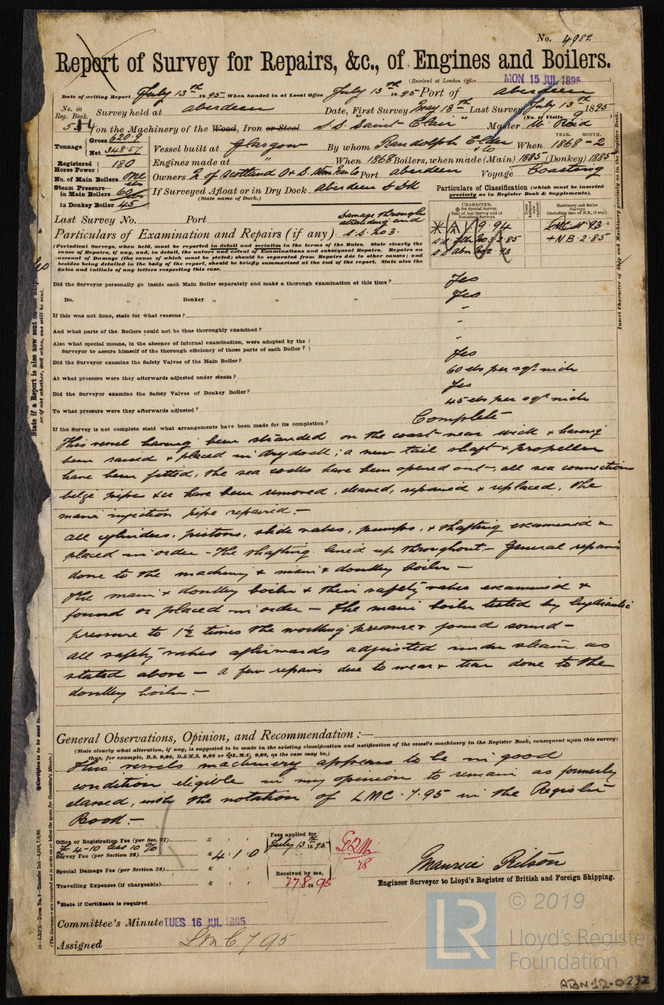 No. 4982
Report of Survey for Repairs, &c., of Engines and Boilers.
(Received at London Office MON 15 JUL 1895
Date of writing Report July 13th 1895 When handed in at Local Office July 13th 1895 Port of Aberdeen
No. in Reg. Book. Survey held at Aberdeen Date, First Survey May 18th Last Survey July 13th 1895
(No. of Visits 9
514 on the Machinery of the Wood, Iron or Steel S.S. Saint Clair Master W. Reid
Tonnage Gross 620.9 Net 348.57
Vessel built at Glasgow By whom Randolph Elder & Co When 1868-2
YEAR. MONTH.
Registered Horse Power 180
Engines made at " When 1868 Boilers, when made (Main) 1885 (Donkey) 1885
No. of Main Boilers one
Owners N of Scotland O & S Port Aberdeen Voyage Coasting
Steam Pressure in Main Boilers 60
in Donkey Boiler 45
If Surveyed Afloat or in Dry Dock Aberdeen
(State name of Dock.)
Particulars of Classification (which must be inserted precisely as in Register Book & Supplements).
Last Survey No. Port
Particulars of Examination and Repairs (if any) Damage through stranding and S.S. No 3.
(Periodical Surveys, when held, must be reported in detail and seriatim in the terms of the Rules. State clearly the cause of Repairs, if any, and, in detail, the nature and extent of Examinations and subsequent Repairs. Repairs on account of Damage (the cause of which must be stated) should be separated from Repairs due to other causes; and besides being detailed in the body of the report, should be briefly summarised at the end of the report. State also the dates and initials of any letters respecting this case.
+ N.B. 2.85
Did the Surveyor personally go inside each Main Boiler separately and make a thorough examination at this time? Yes
Do. " Donkey " " " Yes
If this was not done, state for what reasons? -
And what parts of the Boilers could not be thus thoroughly examined? -
Also what special means, in the absence of internal examination, were adopted by the Surveyor to assure himself of the thorough efficiency of those parts of each Boiler? -
Did the Surveyor examine the Safety Valves of the Main Boiler? Yes
At what pressure were they afterwards adjusted under steam? 60 lbs per sq. inch
Did the Surveyor examine the Safety Valves of Donkey Boiler? Yes
To what pressure were they afterwards adjusted? 45 lbs per sq. inch
If the Survey is not complete state what arrangements have been made for its completion? Complete
This vessel having been stranded on the coast near Wick & having
been raised & placed in dry dock; a new tail shaft & propeller
have been fitted, the sea cocks have been opened out - all sea connections
bilge pipes &c have been removed, cleaned, repaired & replaced, the
main injection pipe repaired -
All cylinders, pistons, slide valves, pumps, & shafting examined &
placed in order - The shafting lined up throughout - General repairs
done to the machinery & main & donkey boiler -
The main & donkey boiler & their safety valves examined &
found or placed in order - The main boiler tested by hydraulic
pressure to 1½ times the working pressure & found sound -
All safety valves afterwards adjusted under steam as
stated above - A few repairs due to wear & tear done to the
donkey boiler. -
General Observations, Opinion, and Recommendation :—
(State clearly what alteration, if any, is suggested to be made in the existing classification and notification of the vessel's machinery in the Register Book, consequent upon this survey; thus, for example, B.S. 9,92, B.&M.S. 9,92 or L.M.C. 9,92, as the case may be.)
This vessels machinery appears to be in good
condition eligible in my opinion to remain as formerly
classed, with the notation of LMC. 7.95 in the Register
Book -
Office or Registration Fee (per Sec. 27)
£ 4-10 less 10 %
Survey Fee (per Section 28) £ 4 . 1 . 0
Special Damage Fee (per Section 28)
Travelling Expenses (if chargeable)
*State if Certificate is required
Fees applied for July 13th 1895
Received by me, 27.8.95
Maurice Gibson
Engineer Surveyor to Lloyd's Register of British and Foreign Shipping.
Committee's Minute TUES 16 JUL 1895
Assigned LMC 7 95
LR
© 2019
Lloyd's Register
Foundation
ABN12-0232